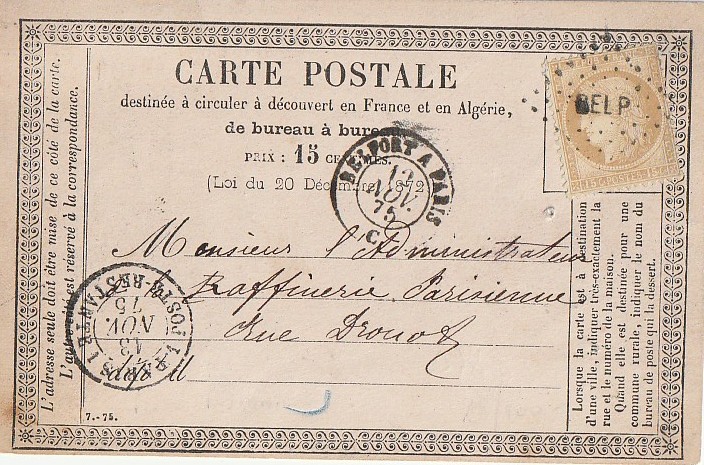 L'adresse seule doit être mise de ce côté de la carte.
L'autre côté est réservé à la correspondance.
CARTE POSTALE
destinée à circuler à découvert en France et en Algérie,
de bureau à bureau
PRIX : 15 CENTIMES.
(Loi du 20 Décembre 1872)
BELP
15 C POSTES 15 C
BELFORT A PARIS
12
NOV.
75
C
Monsieur l'Administrateur
Raffinerie Parisienne
Rue Drouot
PARIS POSTE-RESTANTE
13
NOV.
75
Lorsque la carte est à destination
d'une ville, indiquer très-exactement la
rue et le numéro de la maison.
Quand elle est destinée pour une
commune rurale, indiquer le nom du
bureau de poste qui la dessert.
7.-75.